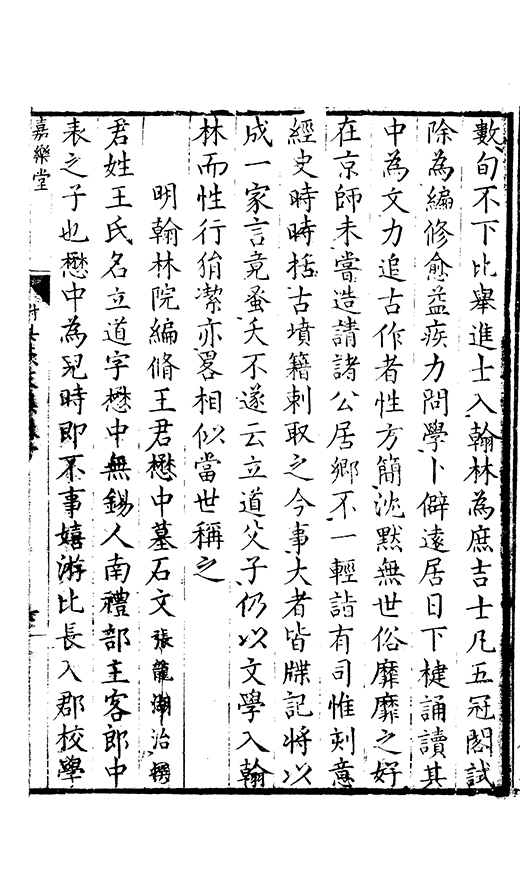 數旬不下比舉進士入翰林為庶吉士凡五冠閣試
除為編修愈益疾力問學卜僻遠居日下楗誦讀其
中為文力追古作者性方簡沈默無世俗靡靡之好
在京師未嘗造請諸公居鄉不一輕詣有司惟刻意
經史時時括古墳籍刺取之今事大者皆牒記將以
成一家言竟蚤夭不遂云立道父子仍以文學入翰
林而性行狷潔亦畧相似當世稱之
明翰林院編脩王君懋中墓石文 張龍湖治撰
君姓王氏名立道字懋中無錫人南禮部主客郎中
表之子也懋中為兒時即不事嬉游比長入郡校學
嘉樂堂